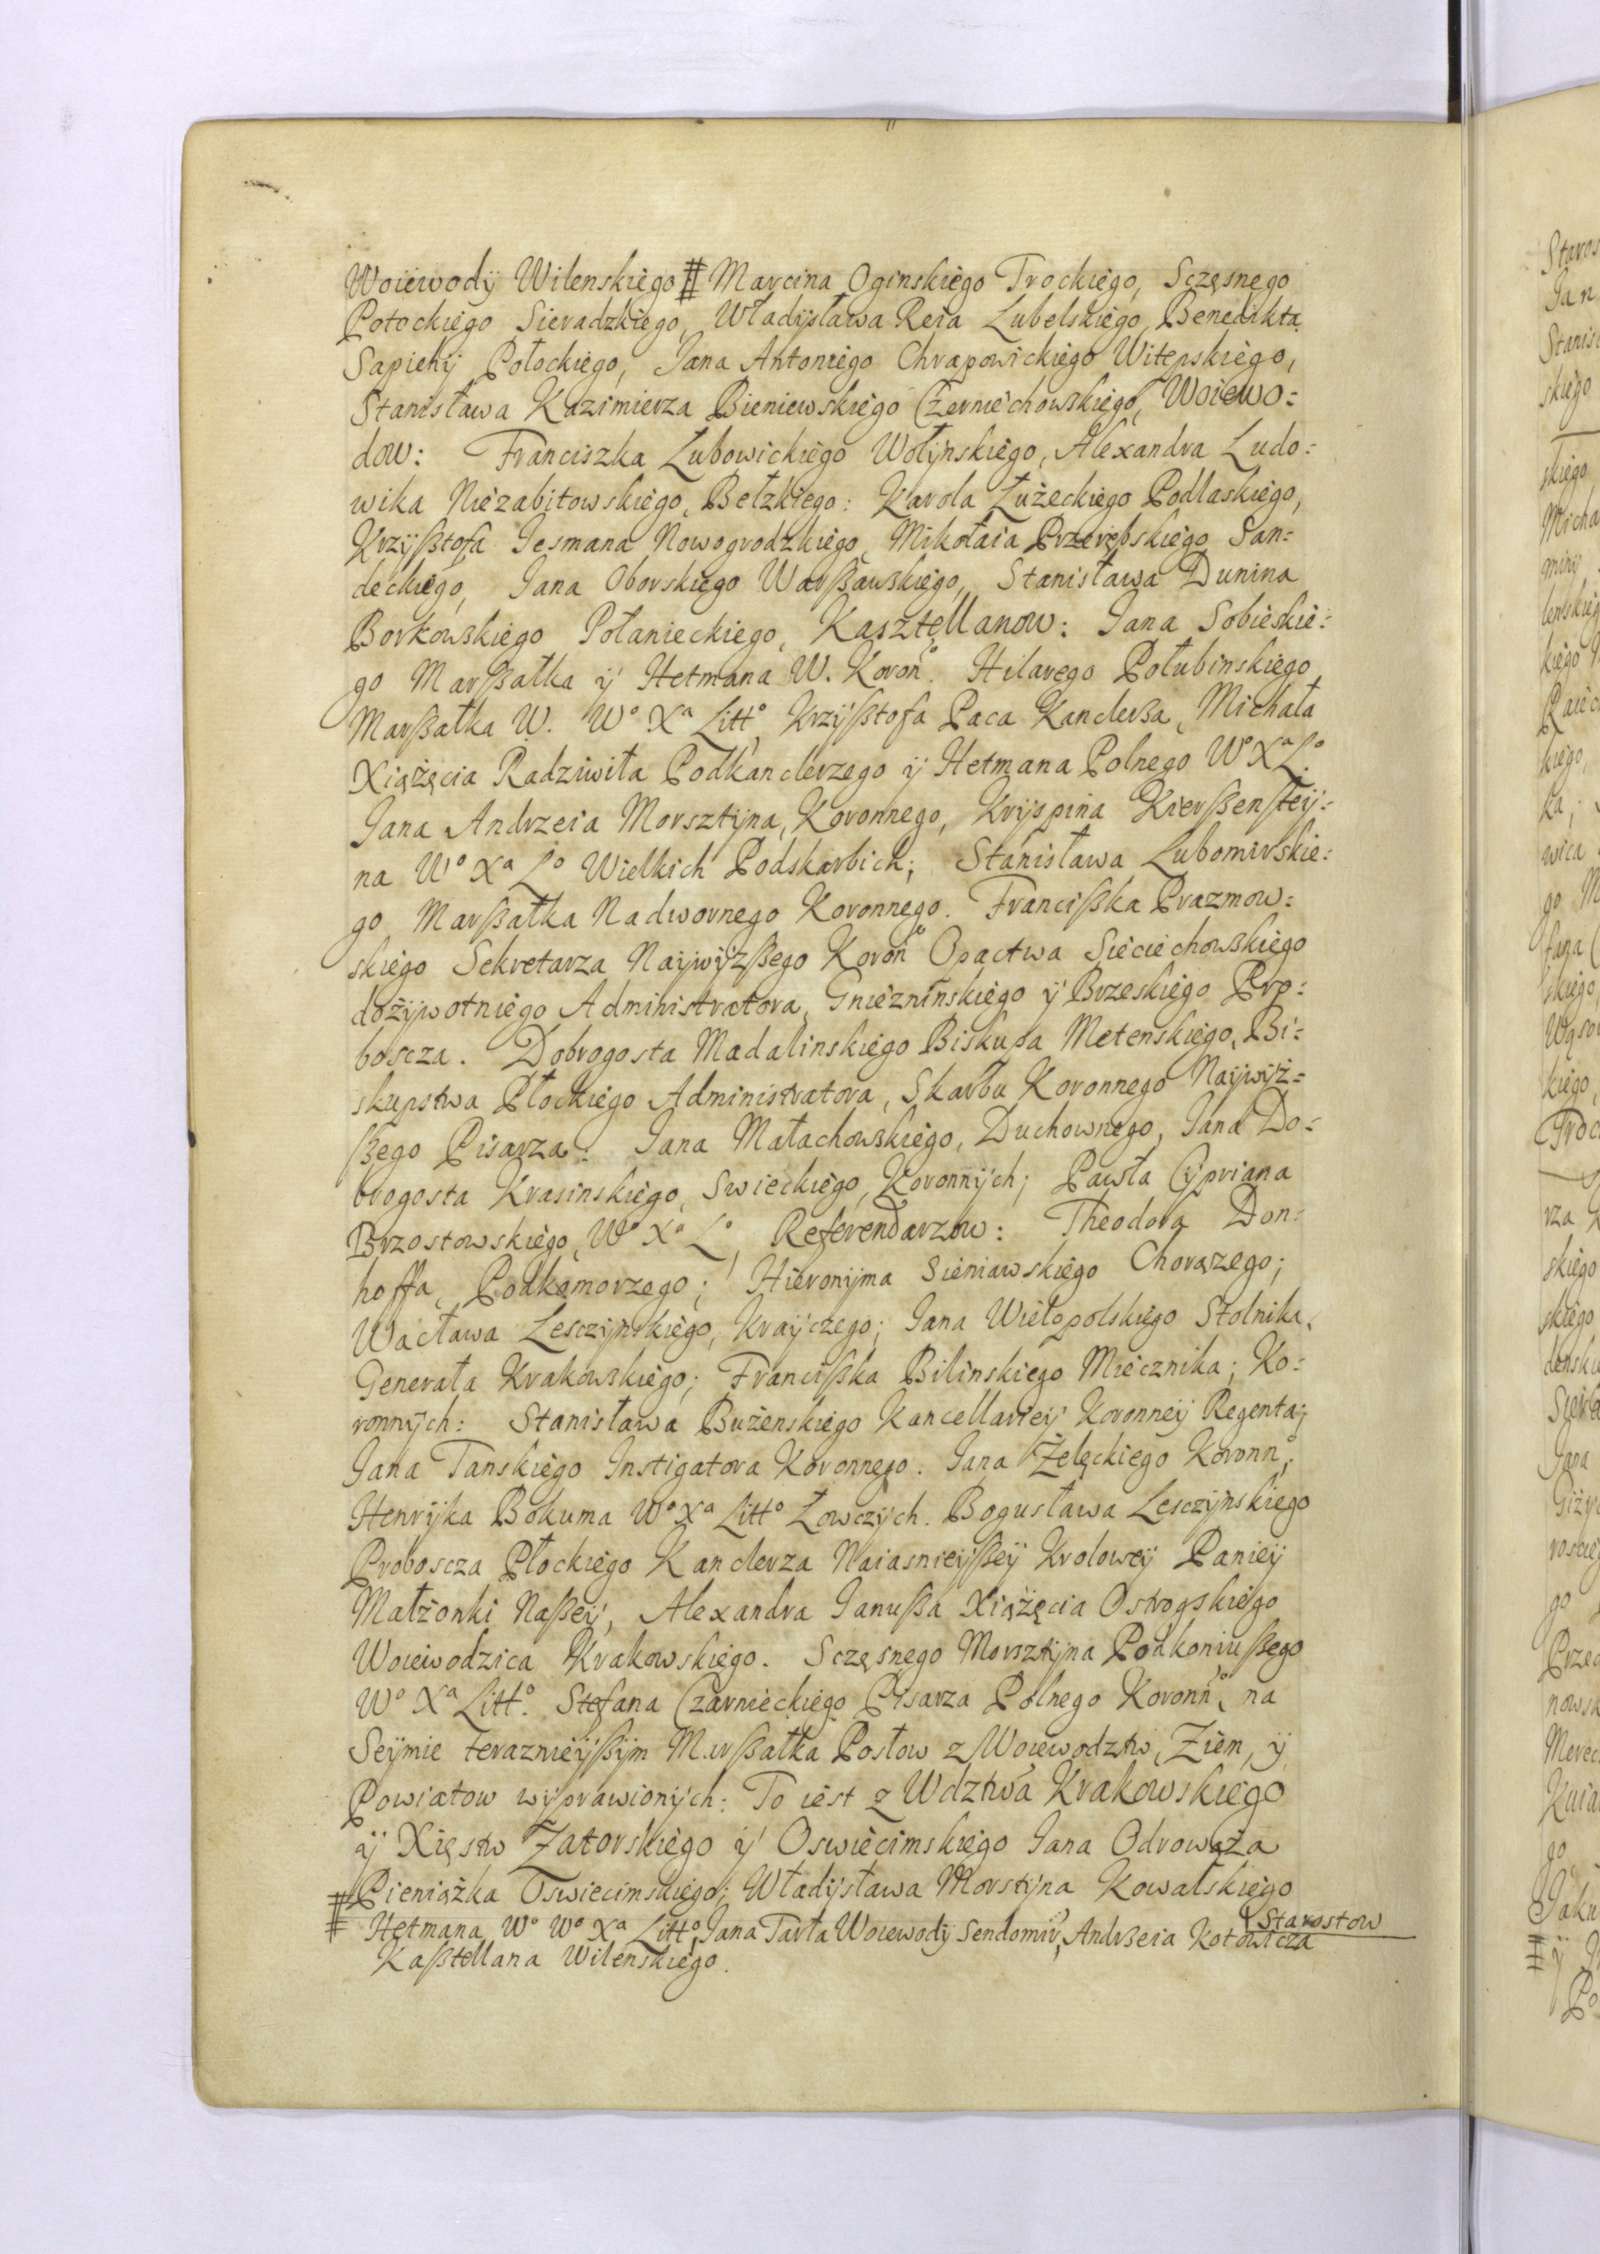 Woiewody Wilenskiego # Marcina Oginskiego Trockiego, Sczęsnego
Potockiego Sieradzkiego, Władysława Reia Lubelskiego, Benedikta
Sapiehy Połockiego, Jana Antoniego Chrapowickiego Witepskiego,
Stanisława Kazimierza Bieniewskiego Czerniechowskiego, Woiewo=
dow: Franciszka Lubowickiego Wołynskiego, Alexandra Ludo=
wika Niezabitowskiego, Bełzkiego: Karola Łużeckiego Podlaskiego,
Krzyßtofa Jesmana Nowogrodzkiego, Mikołaia Przerębskiego San=
deckiego, Jana Oborskiego Warßawskiego, Stanisława Dunina
Borkowskiego Połanieckiego, Kasztellanow: Jana Sobieskie=
go Marßałka ÿ Hetmana W. Koroñ°. Hilarego Połubinskiego
Marßałka W. W° Xª Litt°, Krzyßtofa Paca Kanclerßa, Michała
Xiążęcia Radziwiła Podkanclerzego ÿ Hetmana Polnego W° Xª L°.
Jana Andrzeia Morsztyna, Koronnego, Kryspina Kierßenßtey=
na W° Xª L° Wielkich Podskarbich; Stanisława Lubomirskie=
go Marßałka Nadwornego Koronnego. Francißka Prazmow=
skiego Sekretarza Naywyzßego Koroñ° Opactwa Sieciechowskiego
dożywotniego Administratora, Gnieznińskiego ÿ Brzeskiego Pro=
boscza. Dobrogosta Madalinskiego Biskupa Metenskiego, Bi=
skupstwa Płockiego Administratora, Skarbu Koronnego Naywyż=
ßego Pisarza: Jana Małachowskiego, Duchownego, Jana Do=
brogosta Krasinskiego, Swieckiego, Koronnych; Pawła Cypriana
Brzostowskiego, W° Xª L°, Referendarzow: Theodora Don=
hoffa, Podkomorzego; Hieronyma Sieniawskiego Chorązego;
Wacława Lesczynskiego, Krayczego; Jana Wielopolskiego Stolnika,
Generała Krakowskiego; Francißka Bilinskiego Miecznika; Ko=
ronnych: Stanisława Bużenskiego Kancellariey Koronney Regenta;
Jana Tanskiego Instigatora Koronnego. Jana Żelęckiego Koronn°,
Henryka Bokuma W° Xª Litt° Łowczych. Bogusława Lesczynskiego
Proboscza Płockiego Kanclerza Naiasnieyßey Krolowey Paniey
Małżonki Naßey, Alexandra Janußa Xiążęcia Ostrogskiego
Woiewodzica Krakowskiego. Sczęsnego Morsztyna Podkoniußego
W° Xª Litt°. Stefana Czarnieckiego Pisarza Polnego Koronñ°, na
Seymie teraznieyßym Marßałka Posłow z Woiewodztw, Ziem, ÿ
Powiatow wyprawionych: To iest z Wdztwa Krakowskiego
ÿ Xięstw Zatorskiego ÿ Oswiecimskiego Jana Odrowąża
Pieniążka Oswiecimskiego; Władysława Morstyna Kowalskiego
Starostow
# Hetmana W° W° Xª Litt°, Jana Tarła Woiewody Sendomir, Andrßeia Kotowicza
Kaßtellana Wilenskiego.